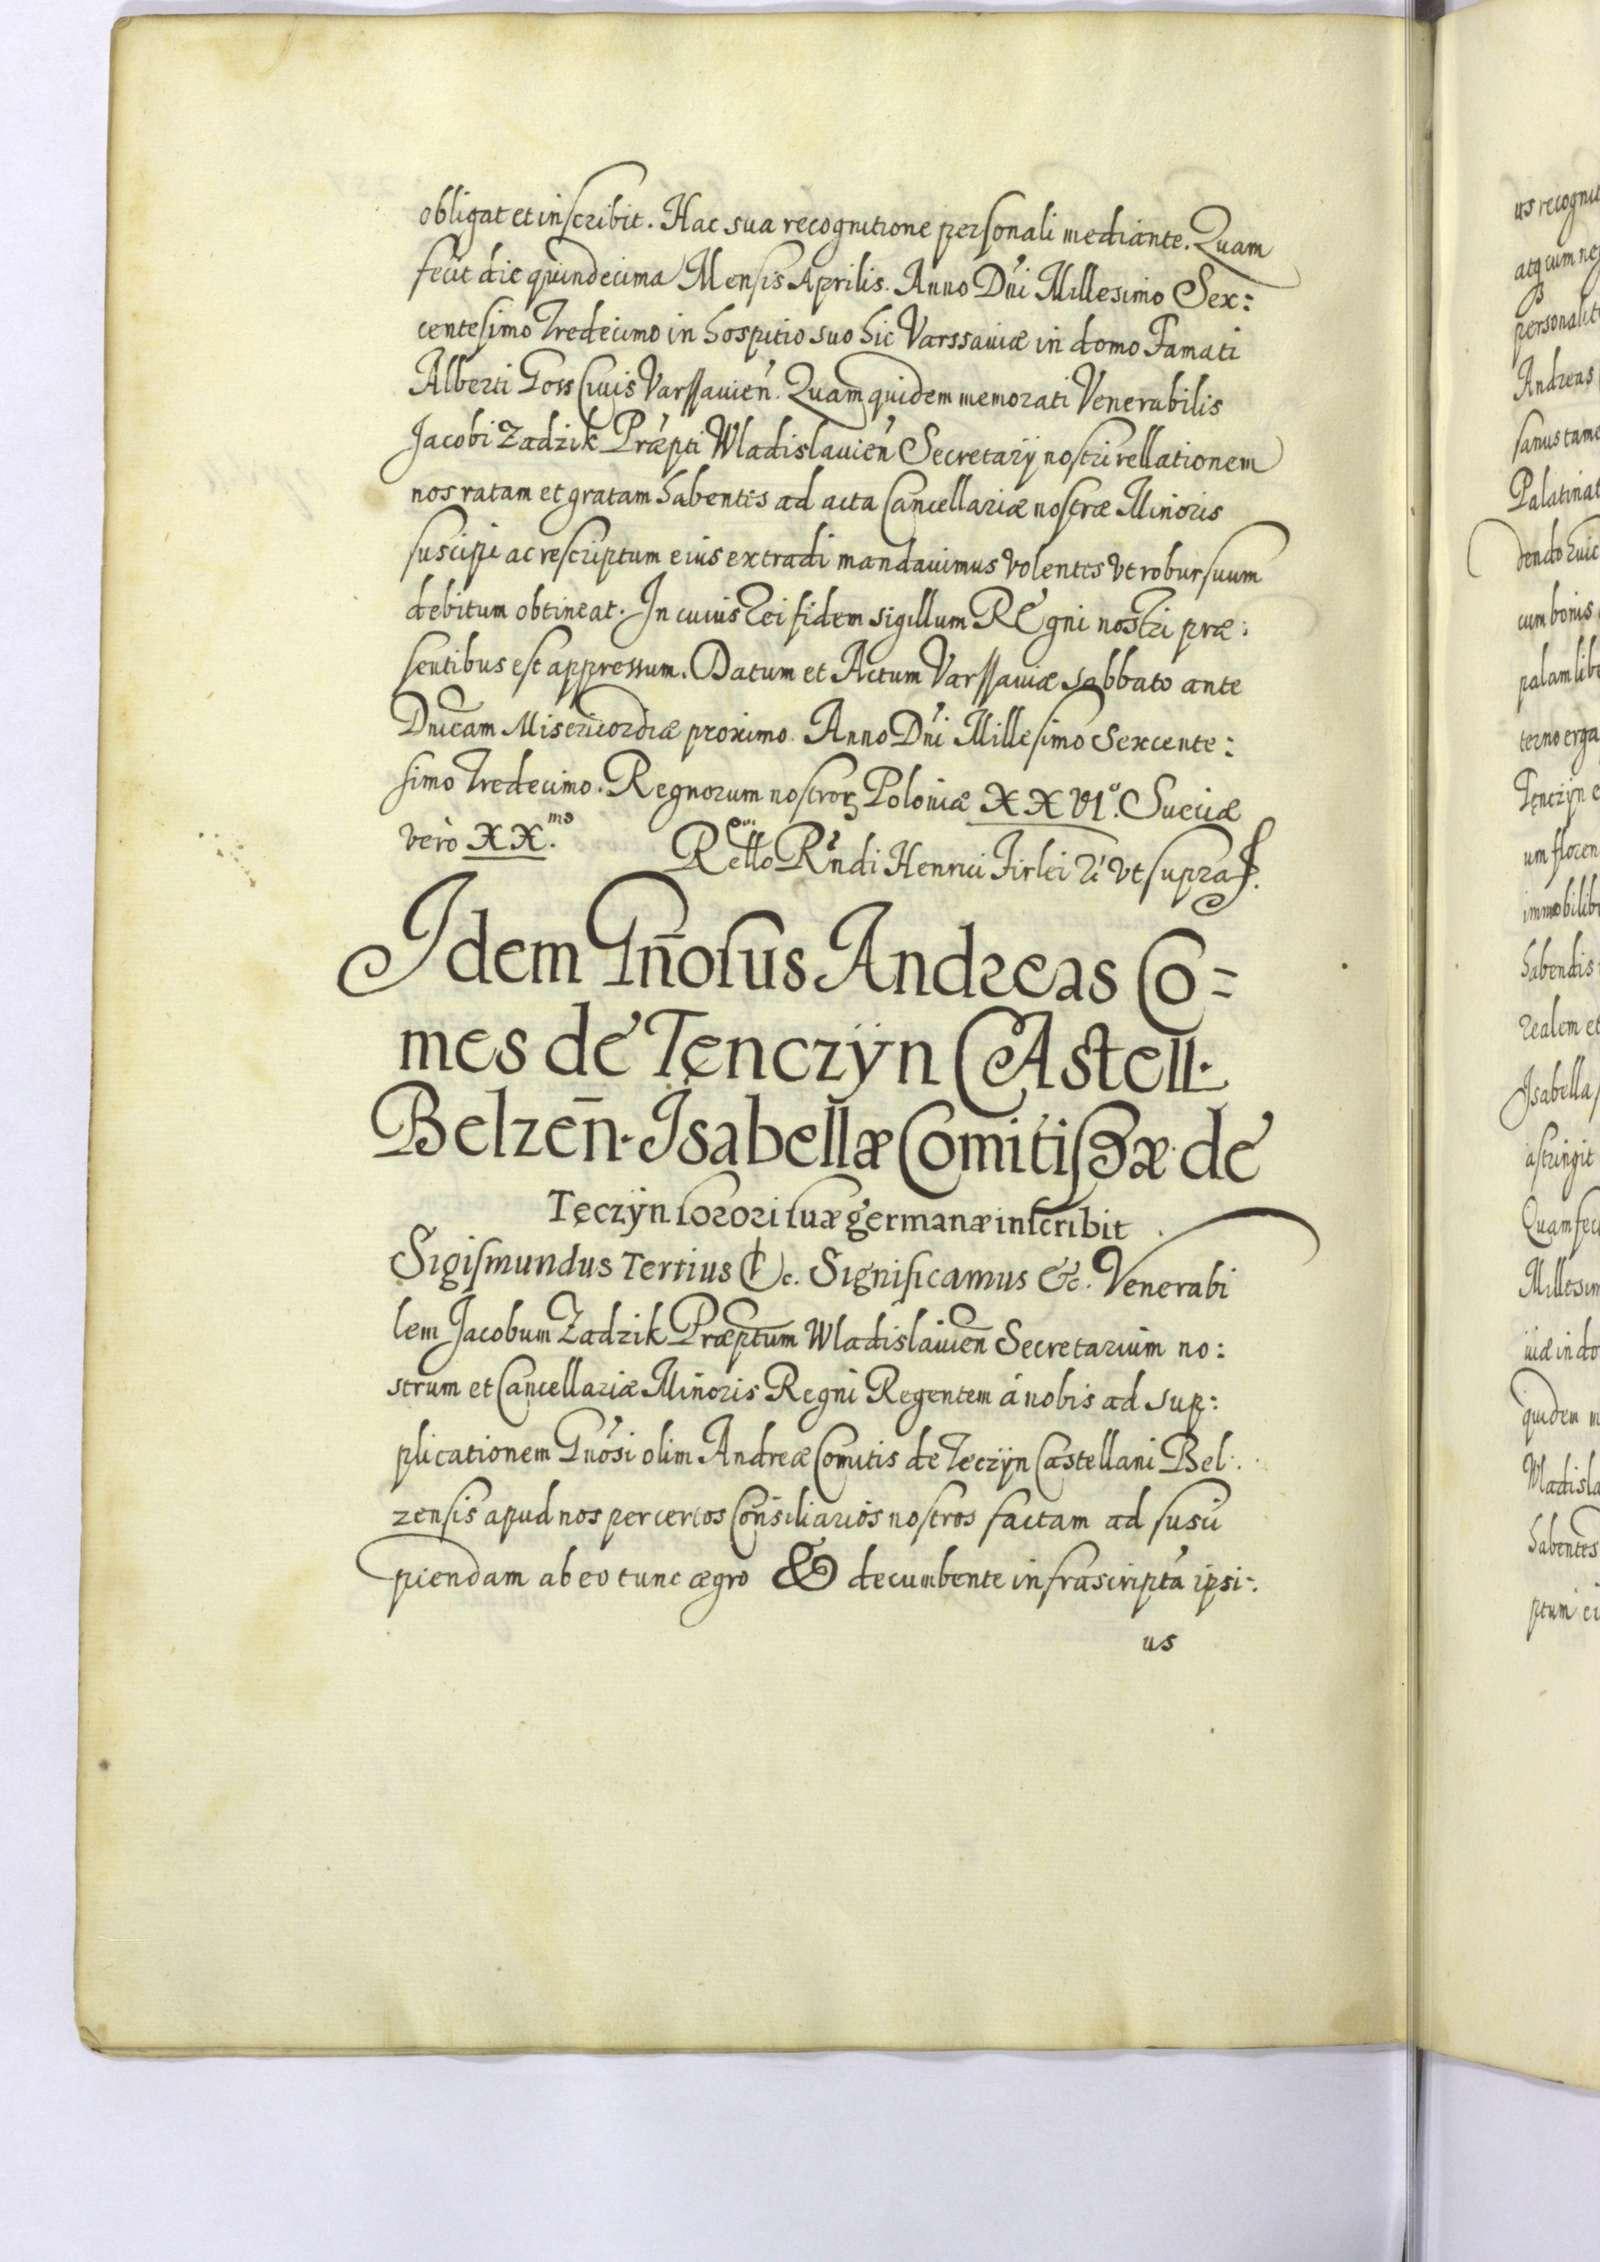 obligat et inscribit. Hac sua recognitione personali mediante. Quam
fecit die quindecima Mensis Aprilis. Anno Dni Millesimo Sex:
centesimo Tredecimo in hospitio suo hic Varssauiæ in domo Famati
Alberti Goss Ciuis Varssauien. Quam quidem memorati Venerabilis
Jacobi Zadzik Præpti Wladislauien Secretarij nostri rellationem
nos ratam et gratam habentes ad acta Cancellariæ nostræ Minoris
suscipi ac rescriptum eius extradi mandauimus volentes vt robur suum
debitum obtineat. In cuius rei fidem sigillum REgni nostri præ:
sentibus est appressum. Datum et Actum Varssauiæ sabbato ante
Dnicam Misericordiæ proximo. Anno Dni Millesimo Sexcente:
simo Tredecimo. Regnorum nostroꝝ Poloniæ XXVI°. Sueciæ
verò XX.mo
Rello Rndi Henrici Firlei vt supra
Idem Gnosus Andreas Co=
mes de Tęnczÿn CAstell.
Belzen. Isabellæ Comitissæ de
Tęczÿn sorori suæ germanæ inscribit
Sigismundus Tertius &c. Significamus &c. Venerabi
lem Jacobum Zadzik Præptum Wladislauien Secretarium no:
strum et Cancellariæ Minoris Regni Regentem á nobis ad sup:
plicationem Gnosi olim Andreæ Comitis de Teczÿn Castellani Bel:
zensis apud nos per certos Consiliarios nostros factam ad susci
piendam ab eo tunc ægro & decumbente infrascripta ipsi:
us
us recogni
atq cum ne
personalit
Andreas
sanus tam
Palatinat
dendo
cum bonis
palam lib
terno erga
Tęnczÿn e
um floren
immobilib
habendis
realem et
Isabella
astringit
Quam fec
Millesim
uiæ in do
quidem m
Wladisla
habentes
ptum ei